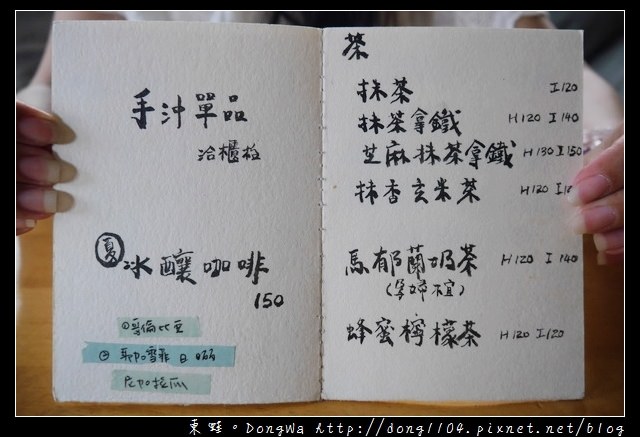 手沖單品
洽櫃檯
夏 冰釀咖啡
150
哥倫比亞
耶加雪菲 日曬
尼加拉瓜
茶
抹茶 I 120
抹茶拿鐵 H 120 I 140
芝麻抹茶拿鐵 H 130 I 150
抹香玄米茶 H 120
馬郁蘭奶茶 H 120 I 140
(孕婦不宜)
蜂蜜檸檬茶 H 120 I 120
東蛙。DongWa http://dong1104.pixnet.net/blog